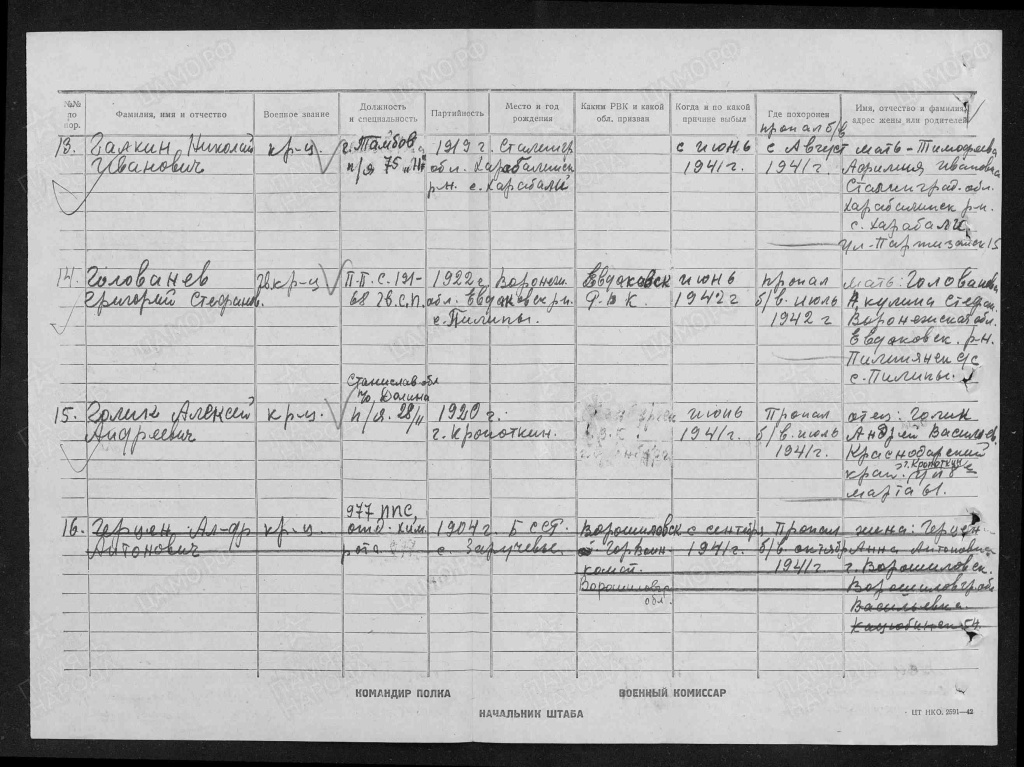 №№ по пор.
Фамилия, имя и отчество
Военное звание
Должность и специальность
Партийность
Место и год рождения
Каким РВК и какой обл. призван
Когда и по какой причине выбыл
Где похоронен
Имя, отчество и фамилия, адрес жены или родителей
13. Галкин Николай
Иванович
кр-ц
г. Тамбов
п/я 75
1919 г. Сталингр.
обл. Харабалинск
р-н. с. Харабали
с июнь
1941 г.
пропал б/в
с Август
1941 г.
мать - Тимофеева
Ивановна
Сталинград. обл.
Харабалинск р-н.
с. Харабали
ул-Партизанск 15
14. Голованев
Григорий Стефанов.
гв. кр-ц
П.П.С. 191-
68 гв.С.П.
1922 г. Воронеж.
обл. Евдаковск р-н.
с. Пилипы.
Евдаковск
Р.В.К.
июнь
1942 г
пропал
б/в. июль
1942 г
мать: Голованева
Акулина Стефан.
Воронежская обл.
Евдаковск. р-н.
Пилипянск с/с
с. Пилипы.
15. Голик Алексей
Андреевич
кр-ц.
Станислав. обл
г. Долина
п/я. 28/11
1920 г.
г. Кропоткин.
июнь
1941 г.
Пропал
б/в. июль
1941 г.
отец: Голик
Андрей Васильев.
Краснодарский
край. г. Кропоткин
марта 61.
16. Герцен Ал-др
Антонович
кр-ц
977 ППС,
отд. хим.
рота
1904 г. БССР.
с. Заручевье
Ворошиловск
Гор. Воен-
комат.
Ворошиловгр.
обл.
с сентябр
1941 г.
Пропал
б/в. октябр
1941 г.
жена: Герцен.
Анна Антоновна
г. Ворошиловск.
Ворошиловгр. обл
КОМАНДИР ПОЛКА
ВОЕННЫЙ КОМИССАР
НАЧАЛЬНИК ШТАБА
ЦТ НКО. 2591—42